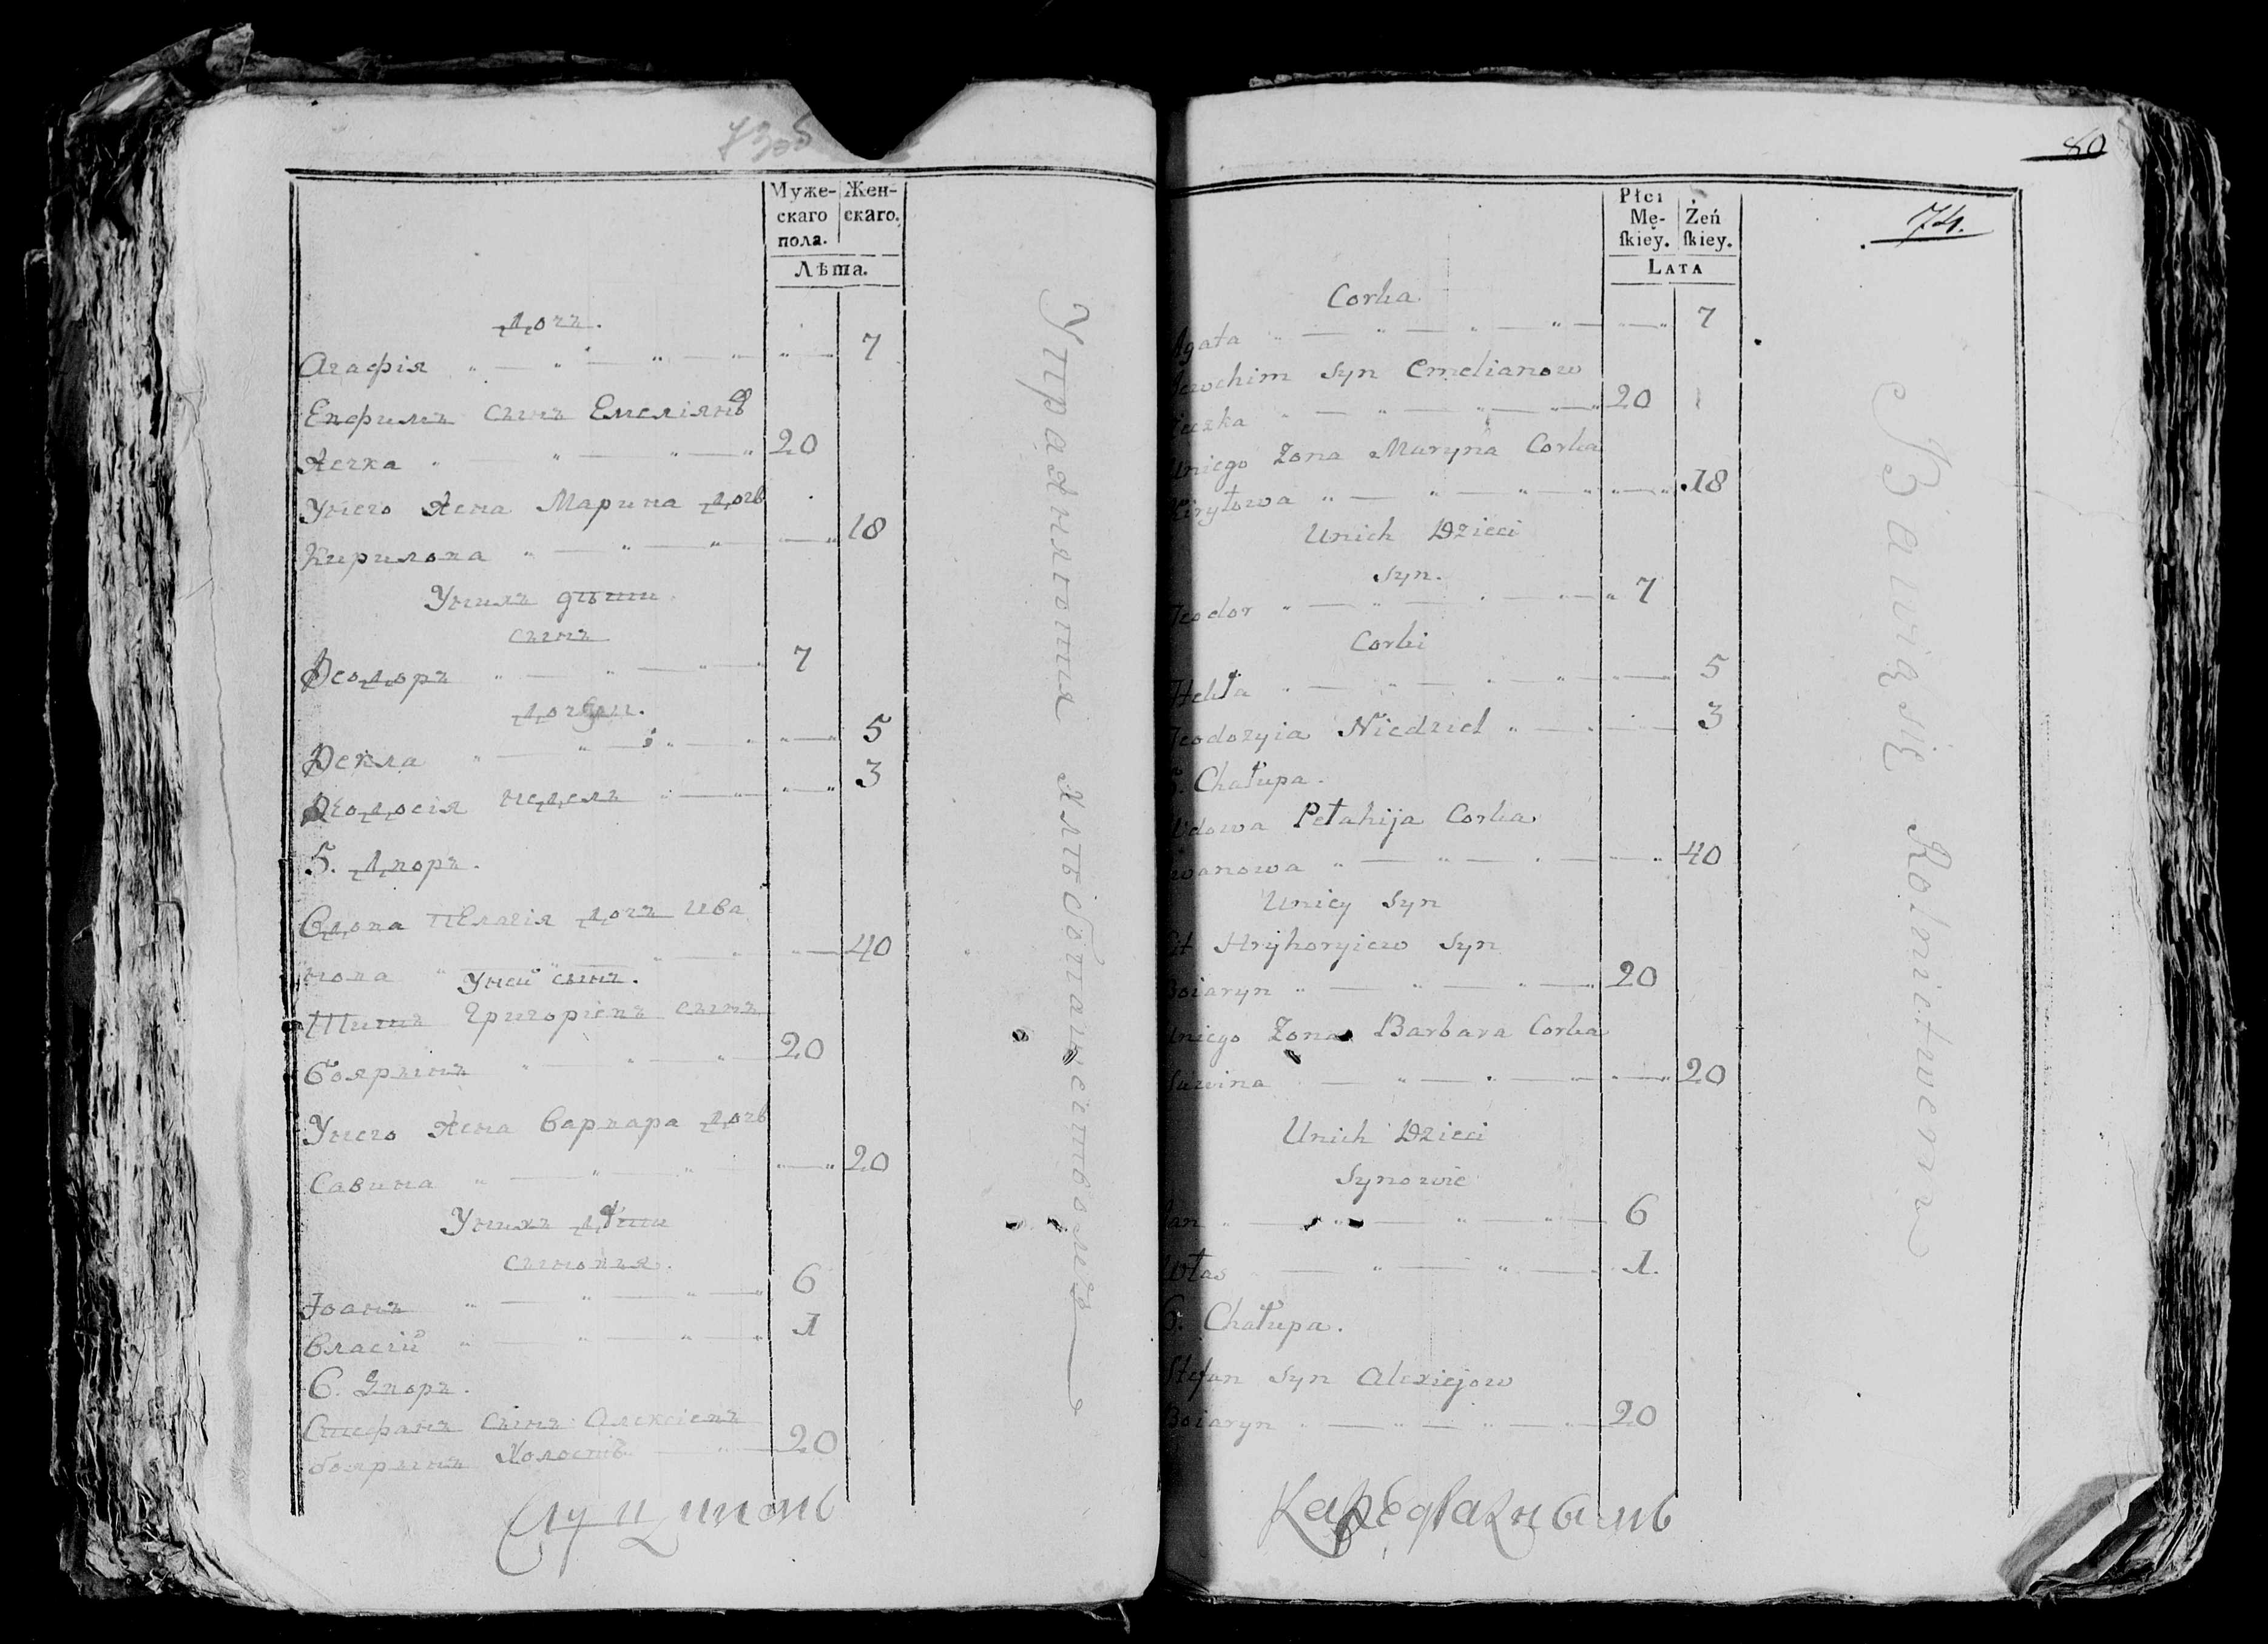 73об
Муже- Жен-
скаго скаго.
пола.
Лѣта.
дочъ.
Агафія 7
Евфимъ сынъ Емеліяновъ
Жечка 20
Унего Жена Марина дочь
Кирилова 18
Унихъ дѣти
сынъ
Ѳеодоръ 7
дочери.
Ѳекла 5
Ѳеодосія недель 3
5. дворъ.
Вдова Пелагія дочъ Ива
нова 40
Уней сынъ.
Титъ Григоріевъ сынъ
бояринъ 20
Унего Жена Варвара дочь
Савина 20
Унихъ дѣти
сыновья.
Іоаннъ 6
Власій 1
6. Дворъ.
Стефанъ сынъ Алексіевъ
бояринъ Холостъ 20
Упражняются Хлѣбопашествомъ
80
74.
Płci
Mę- Żeń
skiey. skiey.
LATA
Corka
Agata 7
Jewchim Syn Emelianow
Zieczka 20
Uniego Zona Maryna Corka
Kiryłowa 18
Unich Dzieci
Syn.
Teodor 7
Corki
Tekla 5
Teodozyia Niedziel 3
5. Chałupa.
Wdowa Pełahija Corka
Iwanowa 40
Uniey Syn
Tit Hryhoryiew Syn
Boiaryn 20
Uniego Zona Barbara Corka
Sawina 20
Unich Dzieci
Synowie
Jan 6
Włas 1.
6. Chałupa.
Stefan Syn Alexiejow
Boiaryn 20
Bawią się Rolnictwem